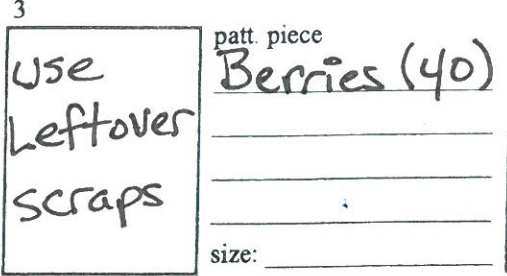 3
use
Leftover
scraps
patt. piece
Berries (40)
size: